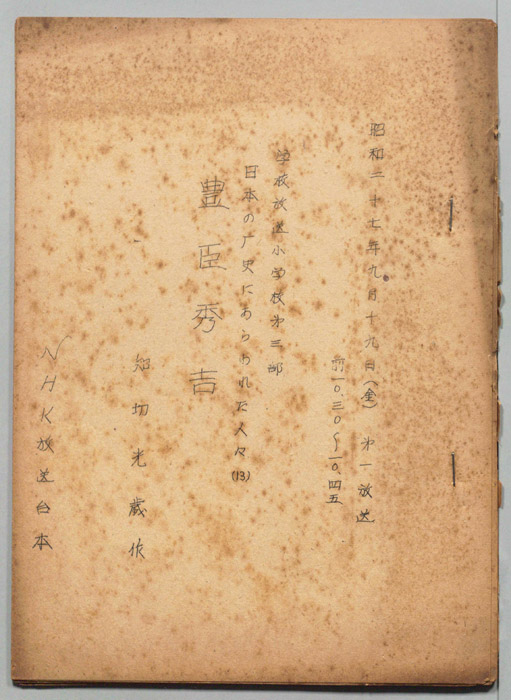 昭和二十七年九月十九日(金) 第一放送
前一〇、三〇〜一〇、四五
学校放送小学校第三部
日本の广史にあらわれた人々(13)
豊臣秀吉
知切光歳作
NHK放送台本